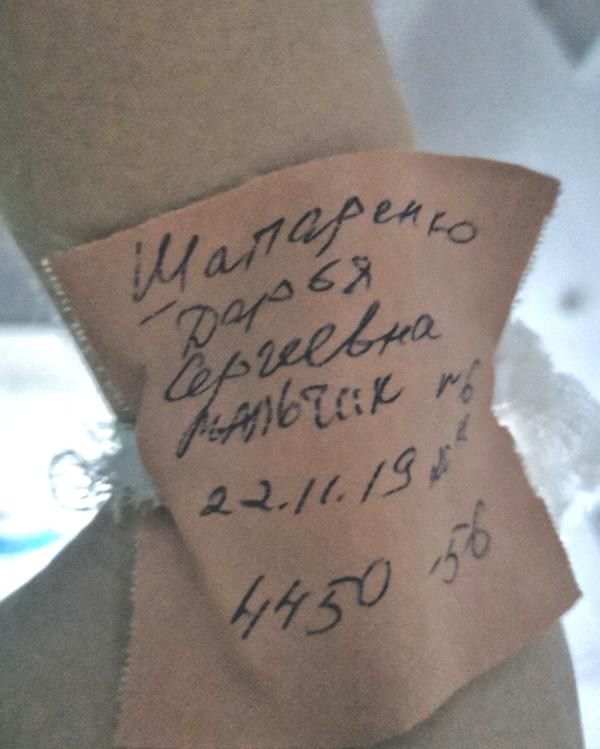 Шапаренко
Дарья
Сергеевна
мальчик №6
22.11.19
4450 .56